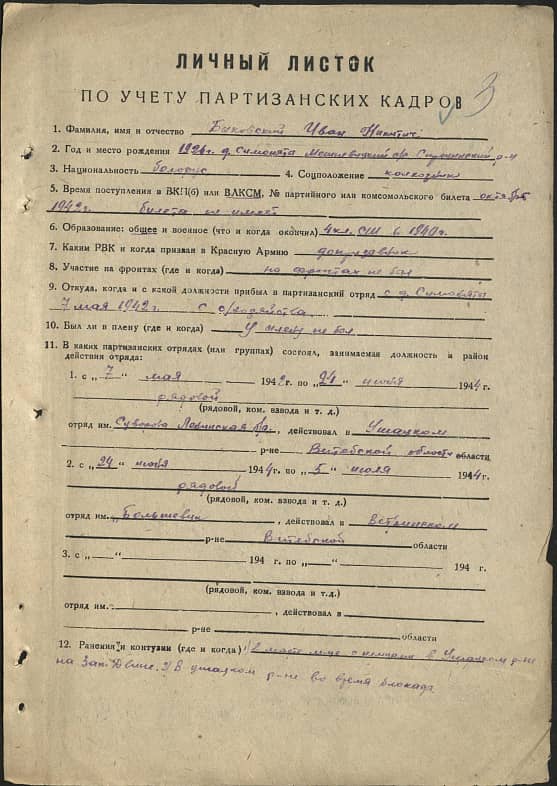 ЛИЧНЫЙ ЛИСТОК
ПО УЧЕТУ ПАРТИЗАНСКИХ КАДРОВ 3
1. Фамилия, имя и отчество Быковский Иван Никитич
2. Год и место рождения 1926г. д. Симонята р-н
3. Национальность белорус 4. Соцположение колхозник
5. Время поступления в ВКП(б) или ВЛКСМ, № партийного или комсомольского билета октябрь
1942г. билета не имеет
6. Образование: общее и военное (что и когда окончил) 4 кл. СШ в 1940г.
7. Каким РВК и когда призван в Красную Армию допризывник
8. Участие на фронтах (где и когда) на фронтах не был
9. Откуда, когда и с какой должности прибыл в партизанский отряд с д. Симонята
7 мая 1942г. с с/хозяйства
10. Был ли в плену (где и когда) У плену не был
11. В каких партизанских отрядах (или группах) состоял, занимаемая должность и район
действия отряда:
1. с „7“ мая 1942г. по „24“ июня 1944г.
рядовой
(рядовой, ком. взвода и т. д.)
отряд им. Суворова Ленинская бр., действовал в Ушацком
р-не Витебской области области
2. с „24“ июня 1944г. по „5“ июля 1944г.
рядовой
(рядовой, ком. взвода и т. д.)
отряд им. „Большевик , действовал в Ветринском
р-не Витебской области
3. с „ “ 194 г. по „ “ 194 г.
(рядовой, ком. взвода и т. д.)
отряд им. , действовал в
р-не области
12. Ранения и контузии (где и когда) с немцами в Ушацком р-не
на Зап. Двине. 2) В ушацком р-не во время блокады